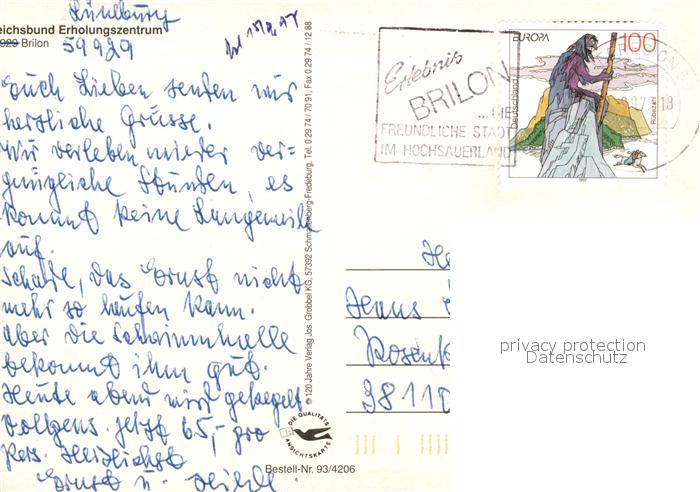 Lüneburg
eichsbund Erholungszentrum
929 Brilon
59929
Erlebnis
BRILON
... DIE
FREUNDLICHE STADT
IM HOCHSAUERLAND
EUROPA
100
Deutschland
Rübezahl
1997
Euch Lieben senden wir
herzliche Grüsse.
Wir verleben wieder ver-
gnügliche Stunden, es
kommt keine Langeweile
auf.
Schade, das Ernst nicht
mehr so laufen kann.
Aber die Schwimmhalle
bekommt ihm gut.
Heute abend wird gekegelt
Vollpens. jetzt 65,- pro
Pers. Herzlichst
Ernst u.
© 120 Jahre Verlag Jos. Grobbel KG, 57392 Schmallenberg-Fredeburg, Tel. 0 29 74 / 70 91, Fax 0 29 74 / 12 88
He
Hans
Rosenk
38110
privacy protection
Datenschutz
DIE QUALITÄTS
ANSICHTSKARTE
Bestell-Nr. 93/4206